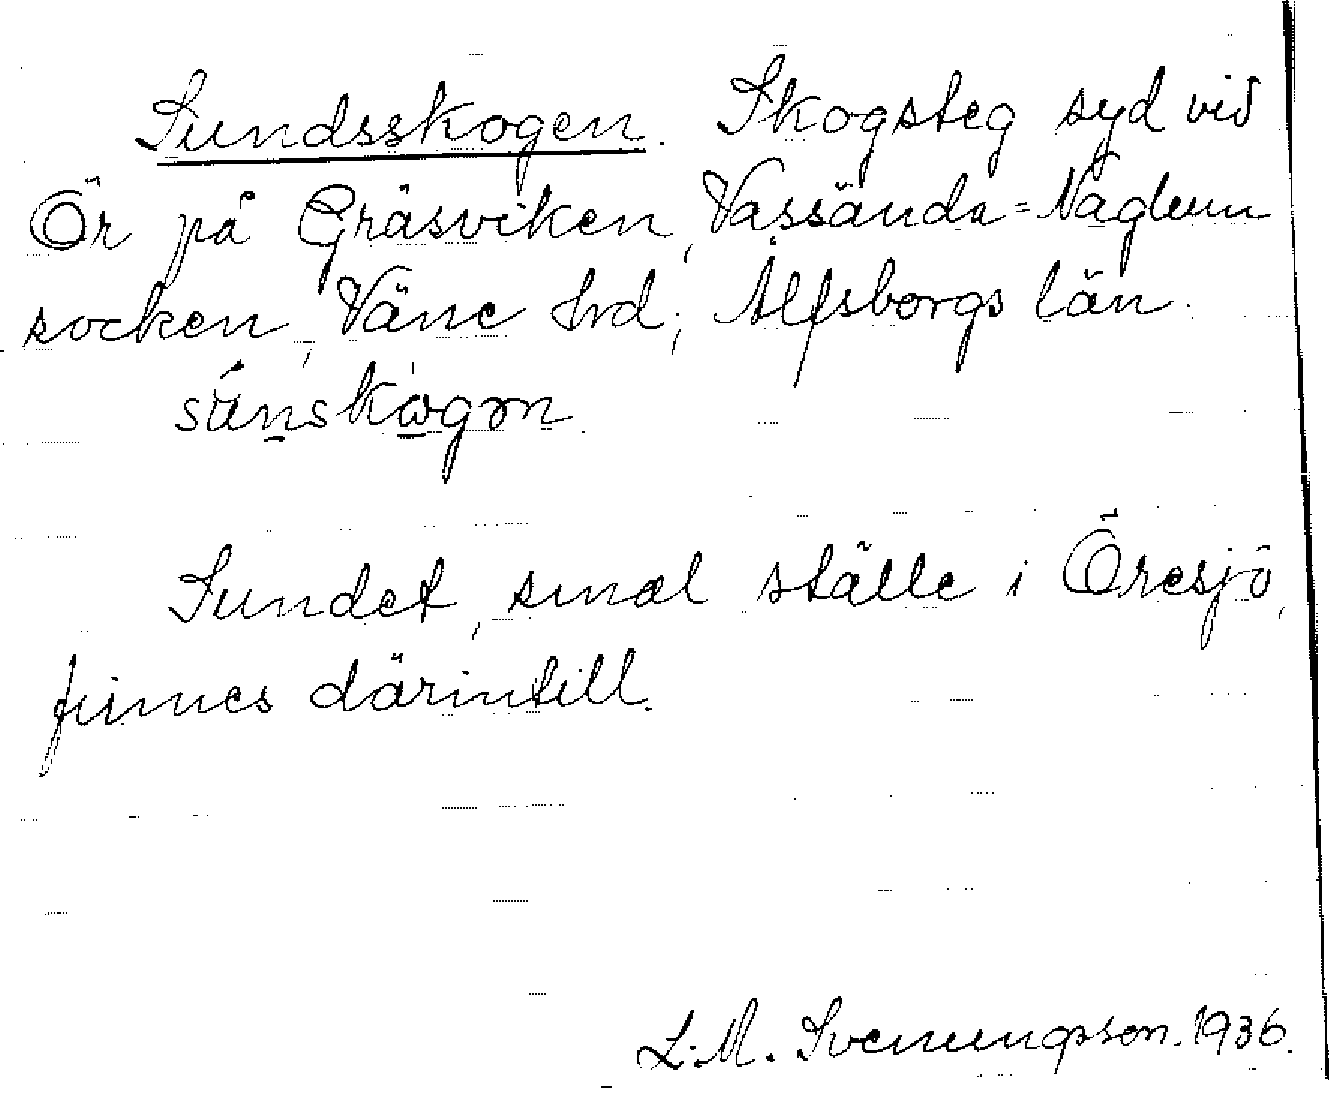 Sundsskogen. Skogsteg syd vid
Ör på Gräsviken, Vassända=Naglum
socken, Väne hrd; Älfsborgs län.
Sundet, smal ställe i Öresjö,
finnes därintill.
L.M. Svenungsson. 1936.